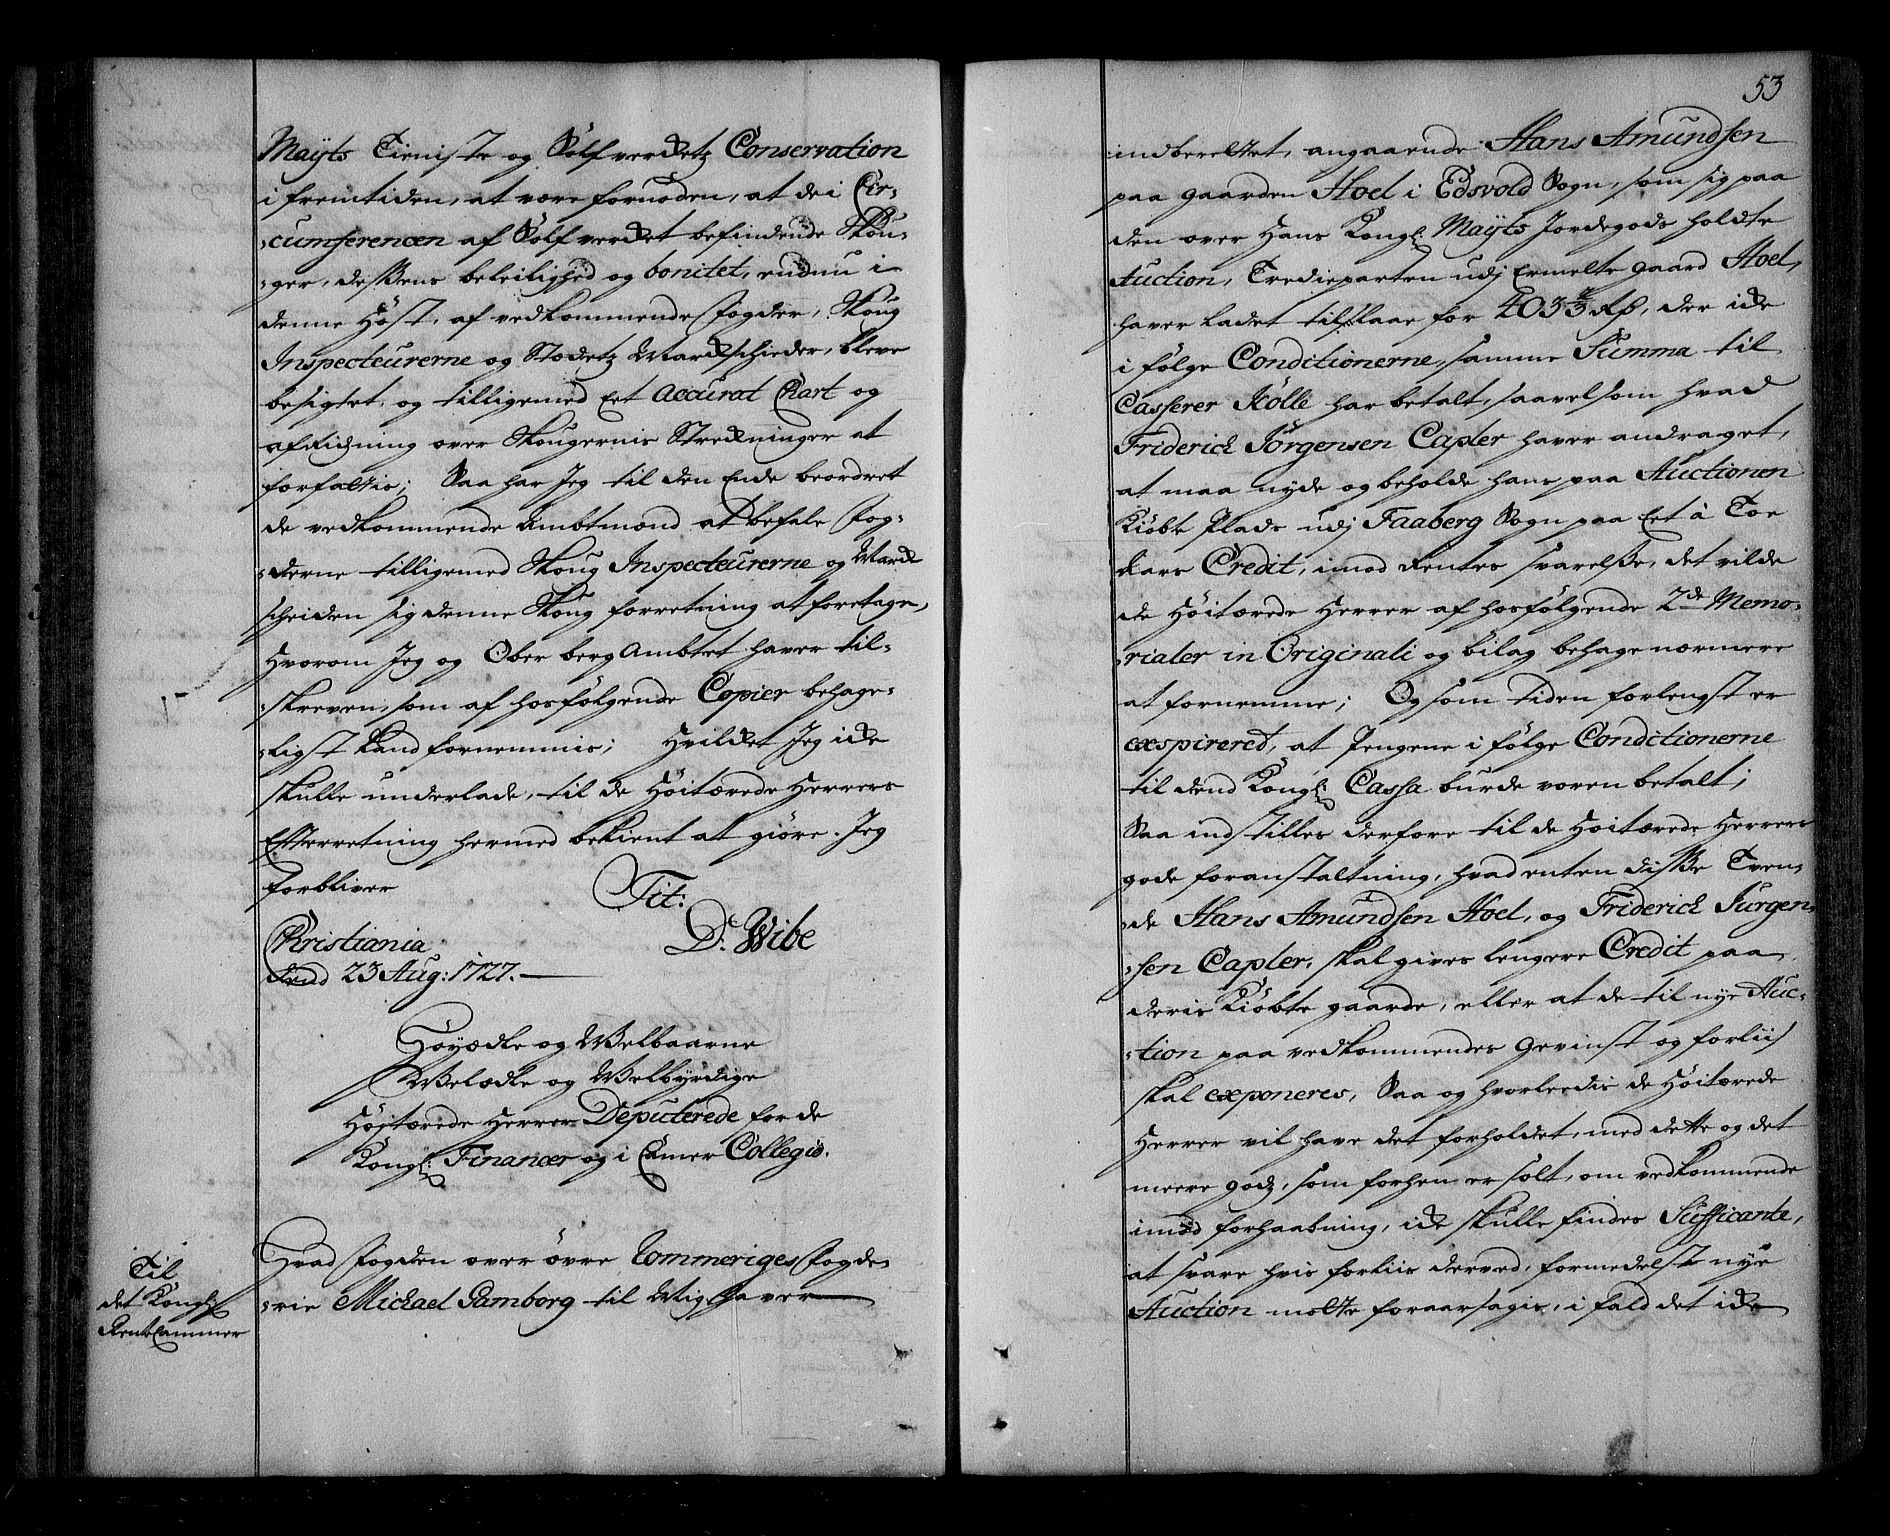 Mayts Tieniste og Sølfverketz Conservation
i fremtiden, at være fornøden, at de i Cir-
-cumferencen af Sølfverket befindende Skou-
-ger, desßens beleilighed og bonitet, endnu i
denne Høst, af vedkommende Fogder, Skoug
Inspecteurerne og Stædetz Markschieder, bleve
besigtet, og tilligemed Eet Accurat Chart og
afridning over Skougernis Strekninger at
forfattis; Saa har Jeg til den Ende beordret
de vedkommende Ambtmænd at befale Fog-
-derne tilligemed Skoug Inspecteurerne og Mark
scheiden sig denne Skoug forretning at foretage,
Hvorom Jeg og Ober berg Ambtet haver til-
-skreven, som af hosfølgende Copier behage-
-ligst kand fornemmis; Hvilket Jeg icke
skulle underlade, til de Høitærede Herrers
Efterretning hermed bekient at giøre. Jeg
forbliver Tit:
Christiania D: Wibe
dend 23 Aug: 1727.
Høyædle og Velbaarne
Velædle og Velbyrdige
Høitærede Herrer Deputerede for de
Kongl: Financer og i Camer Collegio.
Til
det Kongl:
Rente Cammer
Hvad Fogden over øvre Rommeriges Fogde-
-rie Michael Ramborg til Mig haver
53
indberettet, angaaende Hans Amundsen
paa gaarden Hoel i Edsvold Sogn, som sig paa
den over Hans Kongl: Mayts Jordegods holdte
Auction, Tredieparten udj Ermelte gaard Hoel,
haver ladet tilslaae for 403⅔ Rd, der icke
i følge Conditionerne, samme Summa til
Casserer Kølle har betalt, saavelsom hvad
Friderich Jørgensen Capler haver andraget,
at maa nyde og beholde hans paa Auctionen
Kiøbte Plads udj Faaberg Sogn paa Eet à Toe
Aars Credit, imod Rentes svarelße, det vilde
de Høitærede Herrer af hosfølgende 2de Memo-
-rialer in Originali og bilag behage nærmere
at fornemme; Og som tiden forlengst er
exspireret, at Pengene i følge Conditionerne
til dend Kongl: Cassa burde væren betalt;
Saa indstilles derfore til de Høitærede Herrers
gode foranstaltning, hvad enten disße Tven-
-de Hans Amundsen Hoel, og Friderich Jürgen-
-sen Capler, skal gives lengere Credit paa
deris Kiøbte gaarde, eller at de til nye Auc-
-tion paa vedkommendes gevinst og forliis
skal exponeres, Saa og hvorleedis de Høitærede
Herrer vil have det forholdet, med dette og det
meere godz, som forhen er solt, om vedkommende
imod forhaabning, icke skulle findes Sufficante,
at svare hvis forliis derved, formedelst nye
Auction motte foraarsagis, i fald det icke